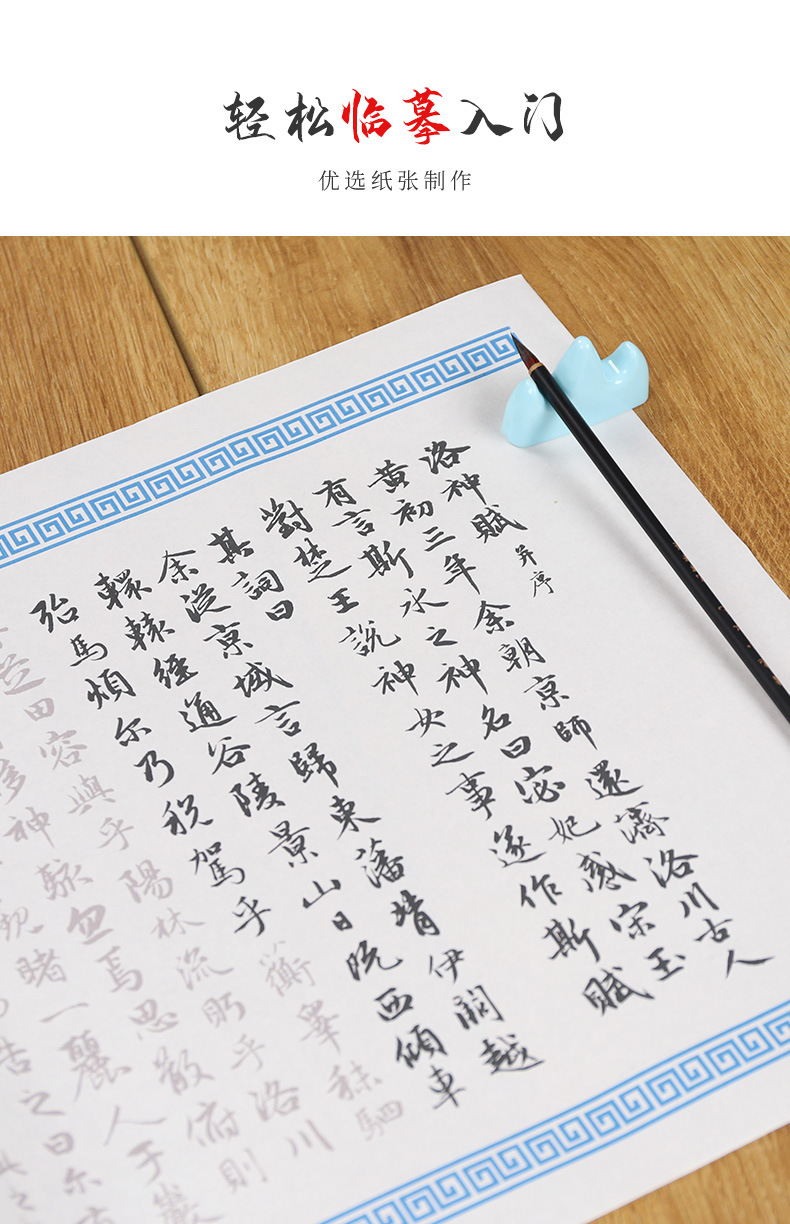 轻松临摹入门
优选纸张制作
洛神賦并序
黄初三年余朝京師還濟洛川古人
有言斯水之神名曰宓妃感宋玉
對楚王說神女之事遂作斯賦
其詞曰
余從京域言歸東藩背伊闕越
轘轅經通谷陵景山日既西傾車
殆馬煩尔乃稅駕乎蘅皋秣駟
芝田容與乎陽林流眄乎洛川
移神駭忽焉思散俯則
觀睹一麗人于巖
告之曰尔